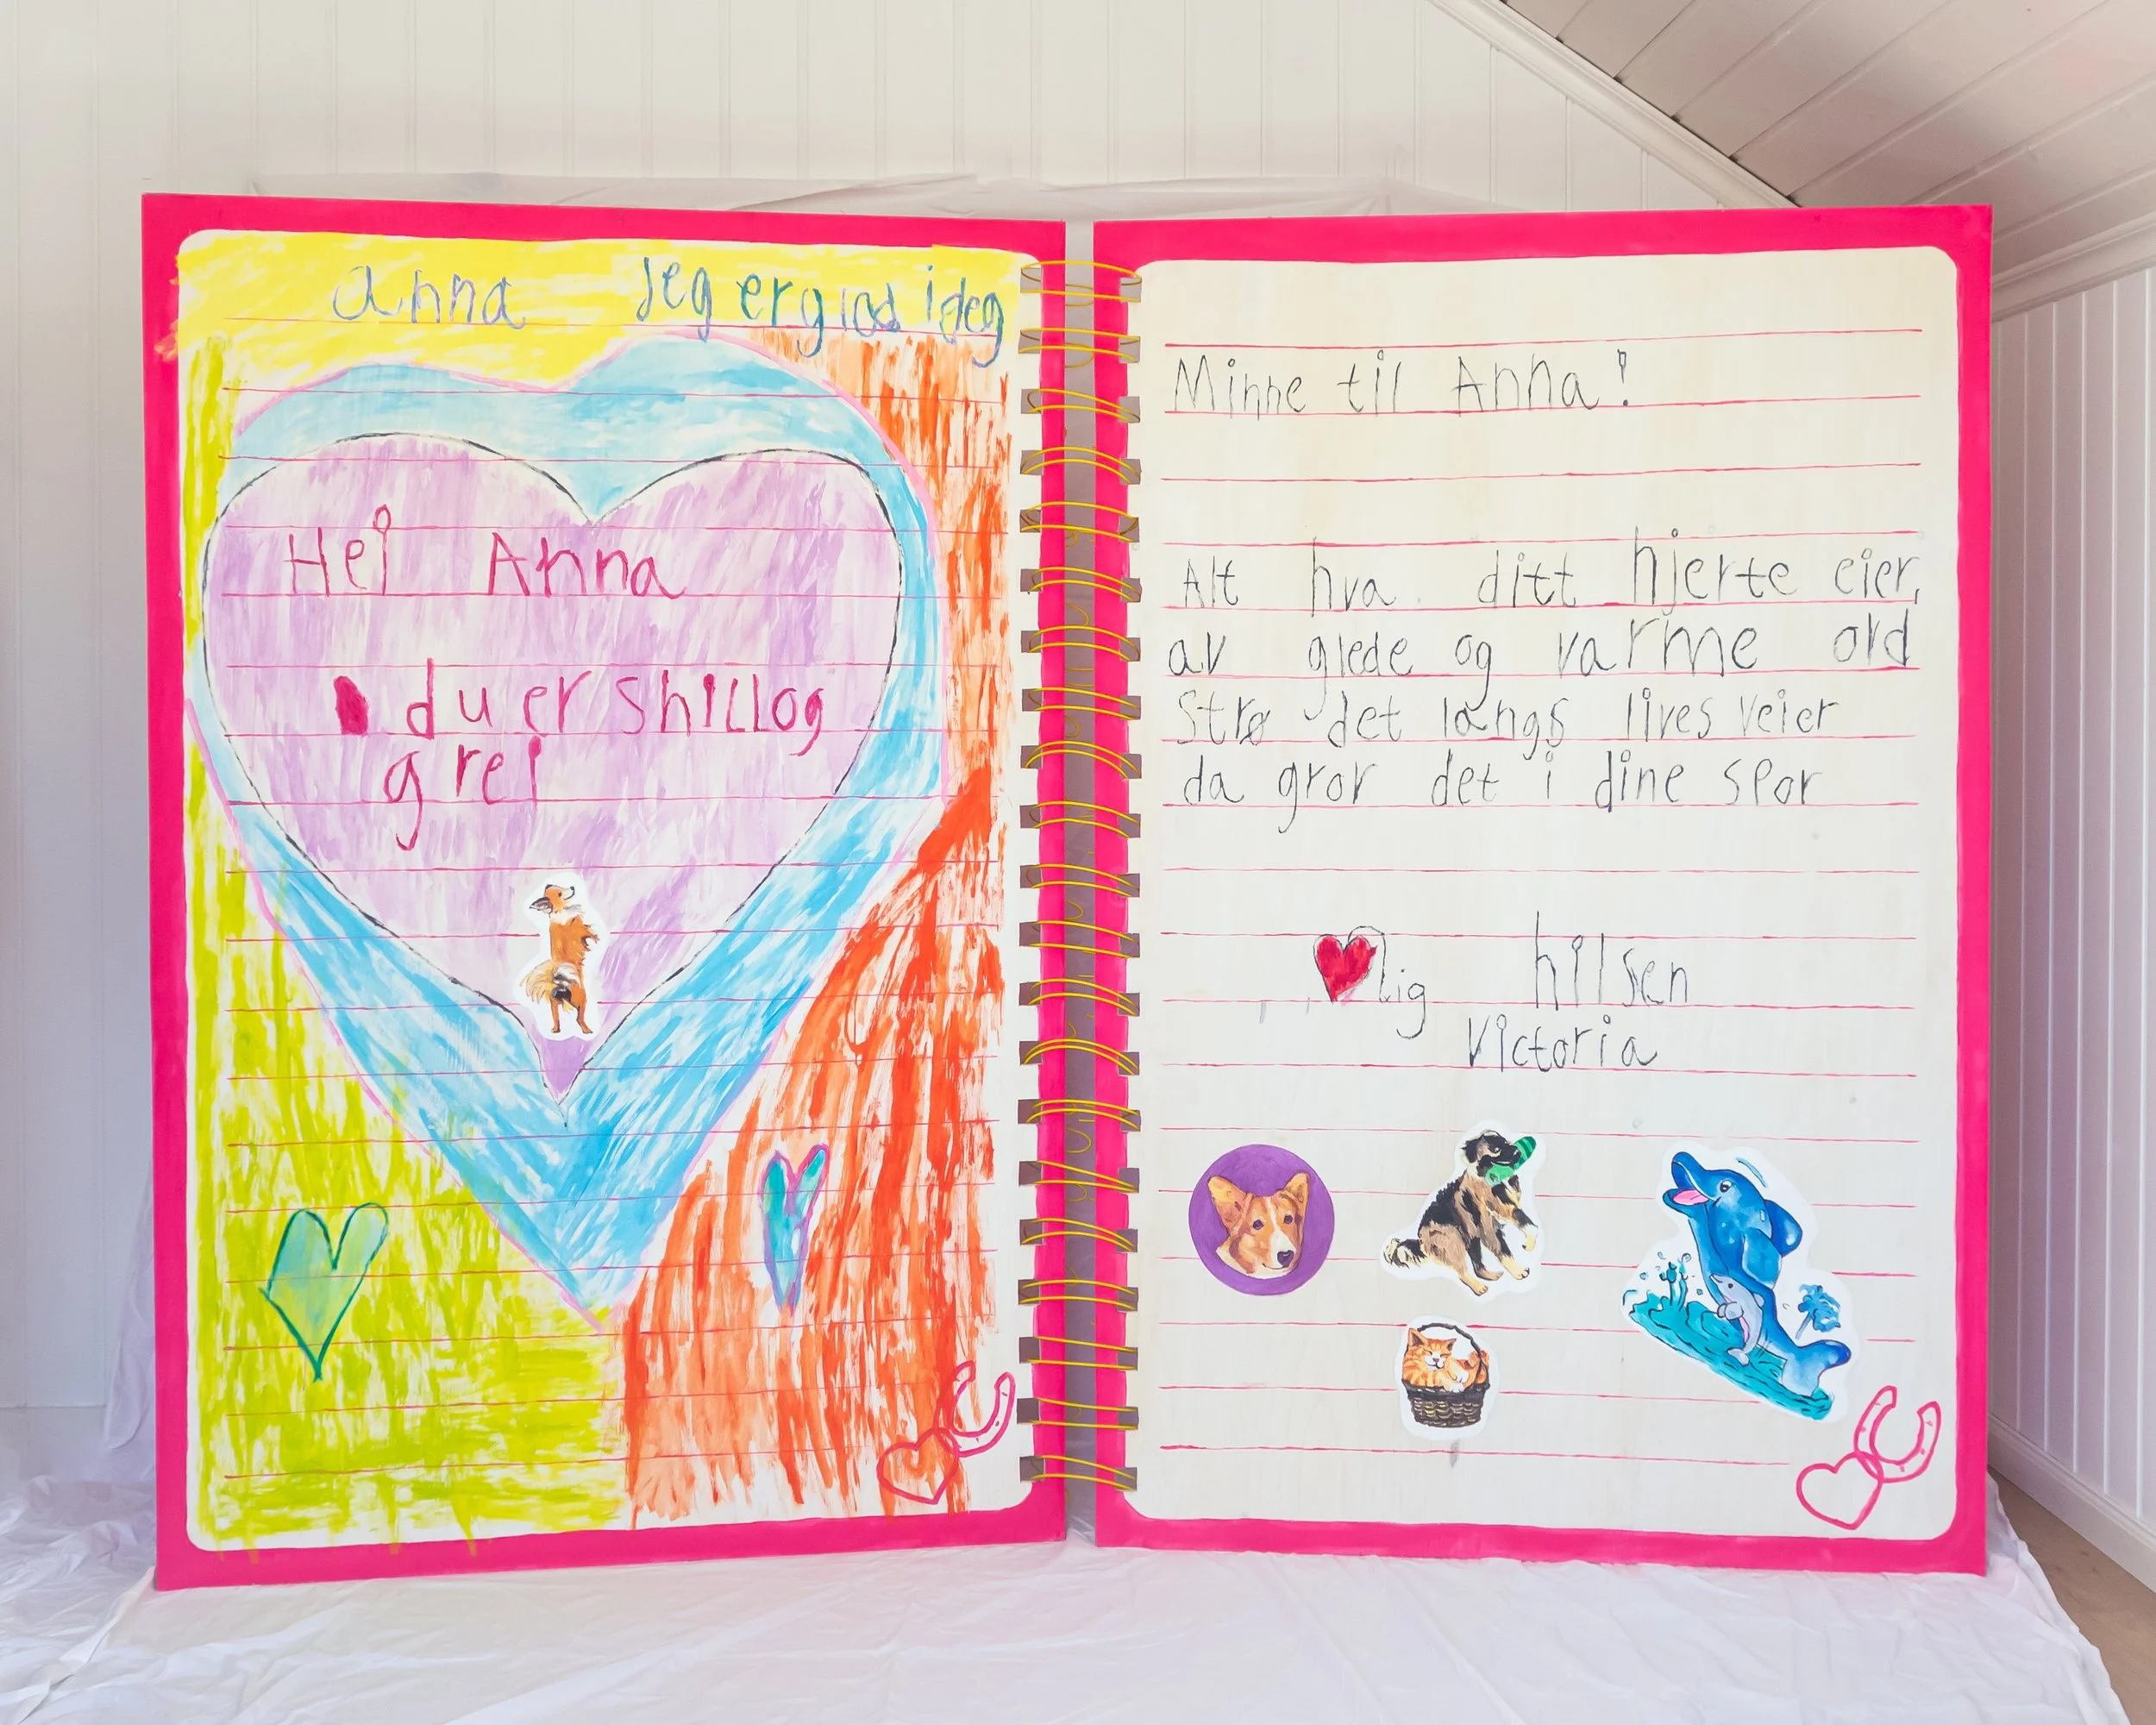 anna Jeg er glad i deg
Hei Anna
du er shillog
grei
Minne til Anna!
Alt hva ditt hjerte eier,
av glede og varme ord
Strø det langs lives veier
da gror det i dine spor
lig hilsen
Victoria